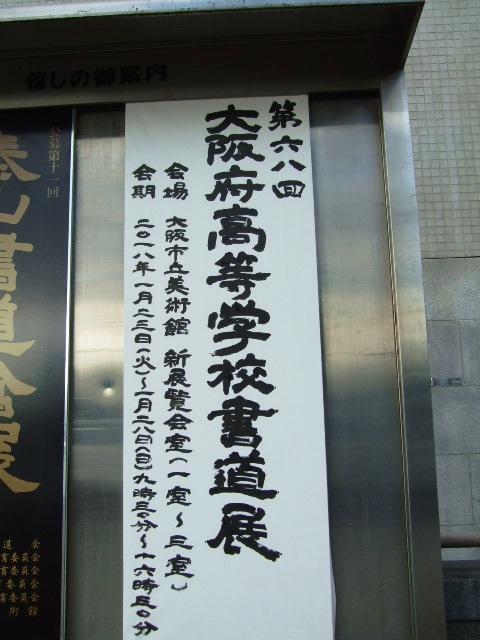 催しの御案内
第六八回
大阪府高等学校書道展
会場 大阪市立美術館 新展覧会室(一室～三室)
会期 二〇一八年一月二三日(火)～一月二八日(日)九時三〇分～十六時三〇分
公募第十一回
書道会展
道会
育委員会
育委員会
育委員会
術館